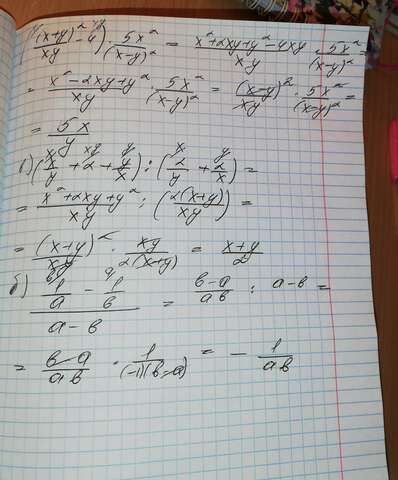 ((x+y)²/xy - 4) · 5x²/(x-y)² = x²+2xy+y²-4xy/xy · 5x²/(x-y)²
= x²-2xy+y²/xy · 5x²/(x-y)² = (x-y)²/xy · 5x²/(x-y)² =
= 5x/y
(x/y + 2 + y/x) : (2/y + 2/x) =
= x²+2xy+y²/xy : (2(x+y)/xy) =
= (x+y)²/xy · xy/2(x+y) = x+y/2
б) 1/a - 1/b / a-b = b-a/ab : a-b =
= b-a/ab · 1/(-1)(b-a) = - 1/ab